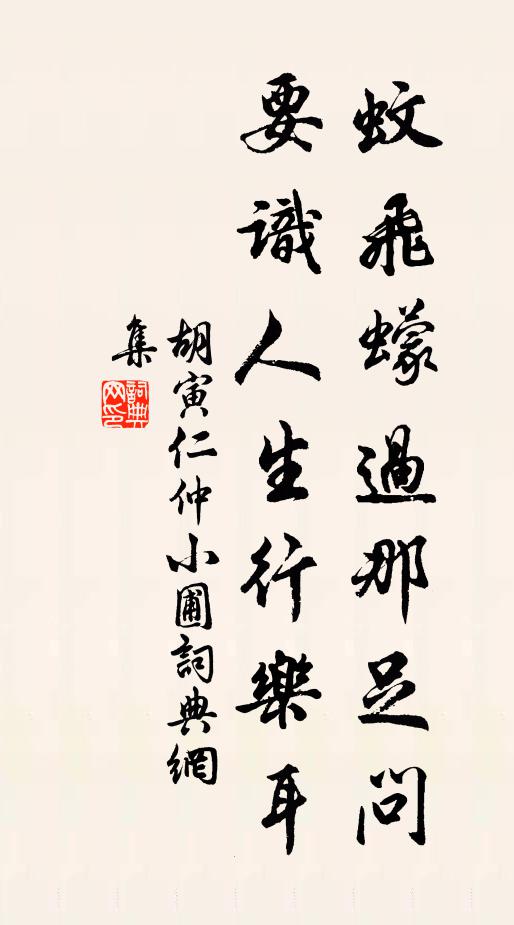 蚊飛蠓過那足問
要識人生行樂耳
胡寅仁仲小圃詞典網
集
詞典
网印